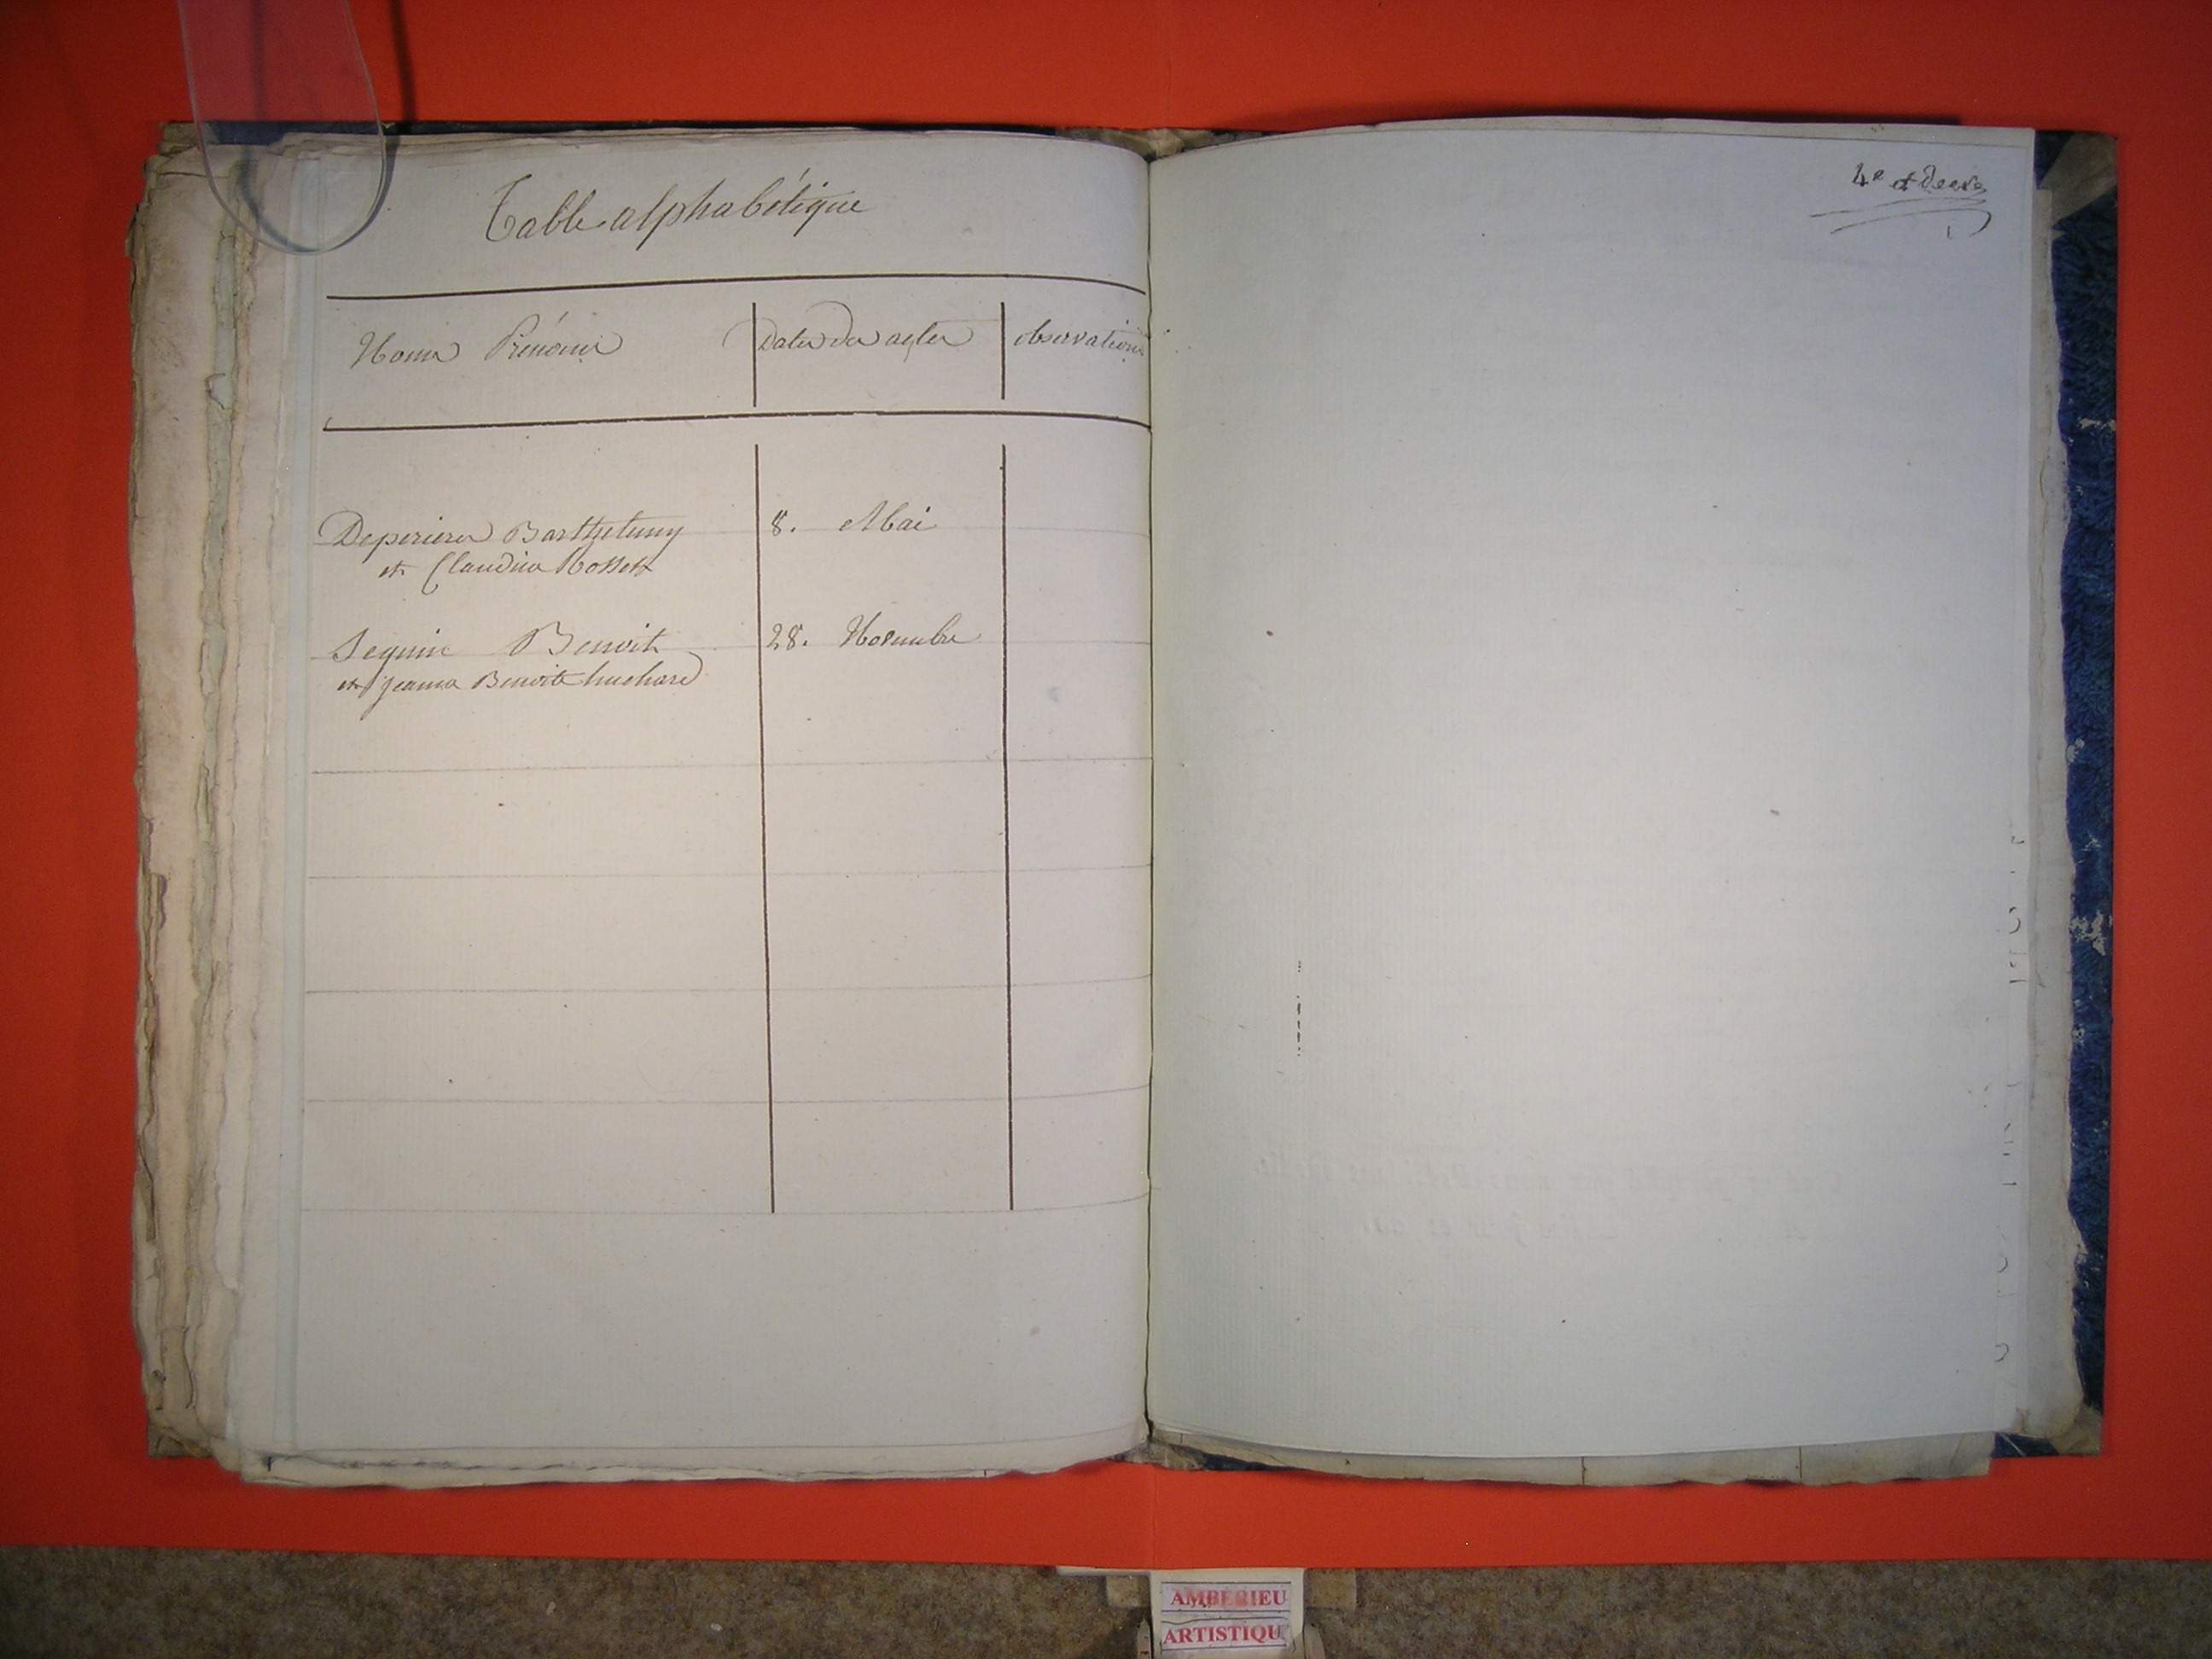 Table alphabétique
Noms Prénoms
Dates des actes
observations
Deperieres Barthelemy
et Claudine Rosset
8. Mai
Seguin Benoit
et jeanne Benoite huchard
28. Novembre
4e et der
AMBERIEU
ARTISTIQU